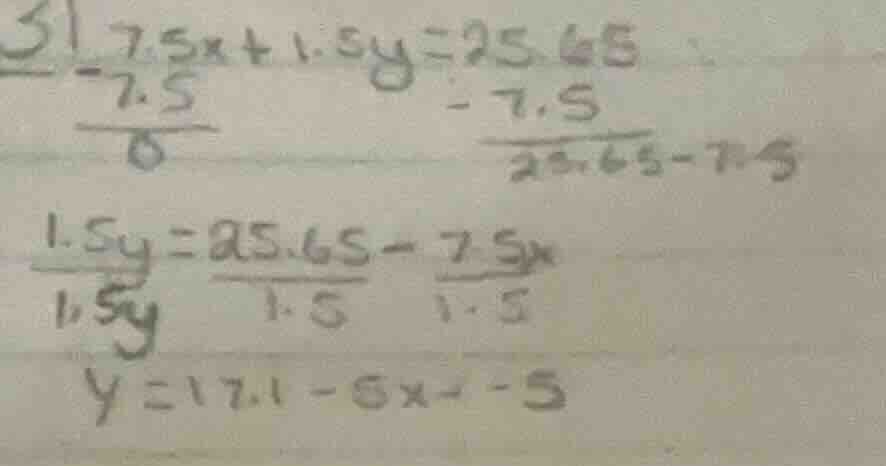 3| 7.5x + 1.5y = 25.65
-7.5 - 7.5
0 25.65 - 7.5
1.5y = 25.65 - 7.5x
1.5y 1.5 1.5
y = 17.1 - 5x - -5